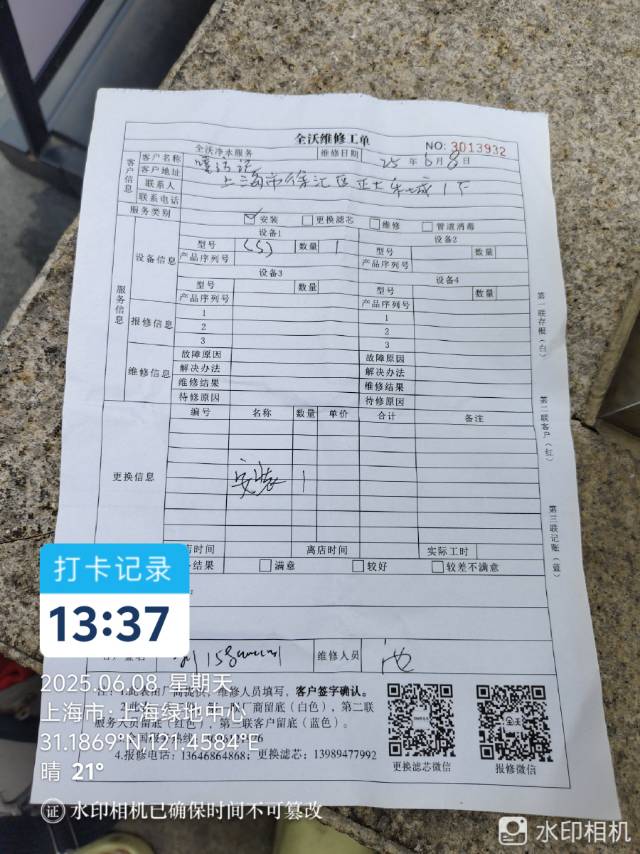 全沃维修工单
全沃净水服务 维修日期 25 年 6 月 8 日 NO: 3013932
客户信息
客户名称
客户地址 上海市徐汇区正大乐城1下
联系人
联系电话
服务类别 安装 更换滤芯 维修 管道消毒
服务信息
设备信息
设备1 设备2
型号 数量 1 型号 数量
产品序列号 产品序列号
设备3 设备4
型号 数量 型号 数量
产品序列号 产品序列号
报修信息
1 1
2 2
3 3
维修信息
故障原因 故障原因
解决办法 解决办法
维修结果 维修结果
待修原因 待修原因
更换信息
编号 名称 数量 单价 合计 备注
安装 1
店时间 离店时间 实际工时
结果 满意 较好 较差不满意
维修人员
第一联存根(白)
第二联客户(红)
第三联记账(蓝)
客户签字确认。
4.报修电话：13646864868；更换滤芯：13989477992
更换滤芯微信 报修微信
打卡记录
13:37
2025.06.08 星期天
上海市·上海绿地中心
31.1869°N,121.4584°E
晴 21°
证 水印相机已确保时间不可篡改
水印相机